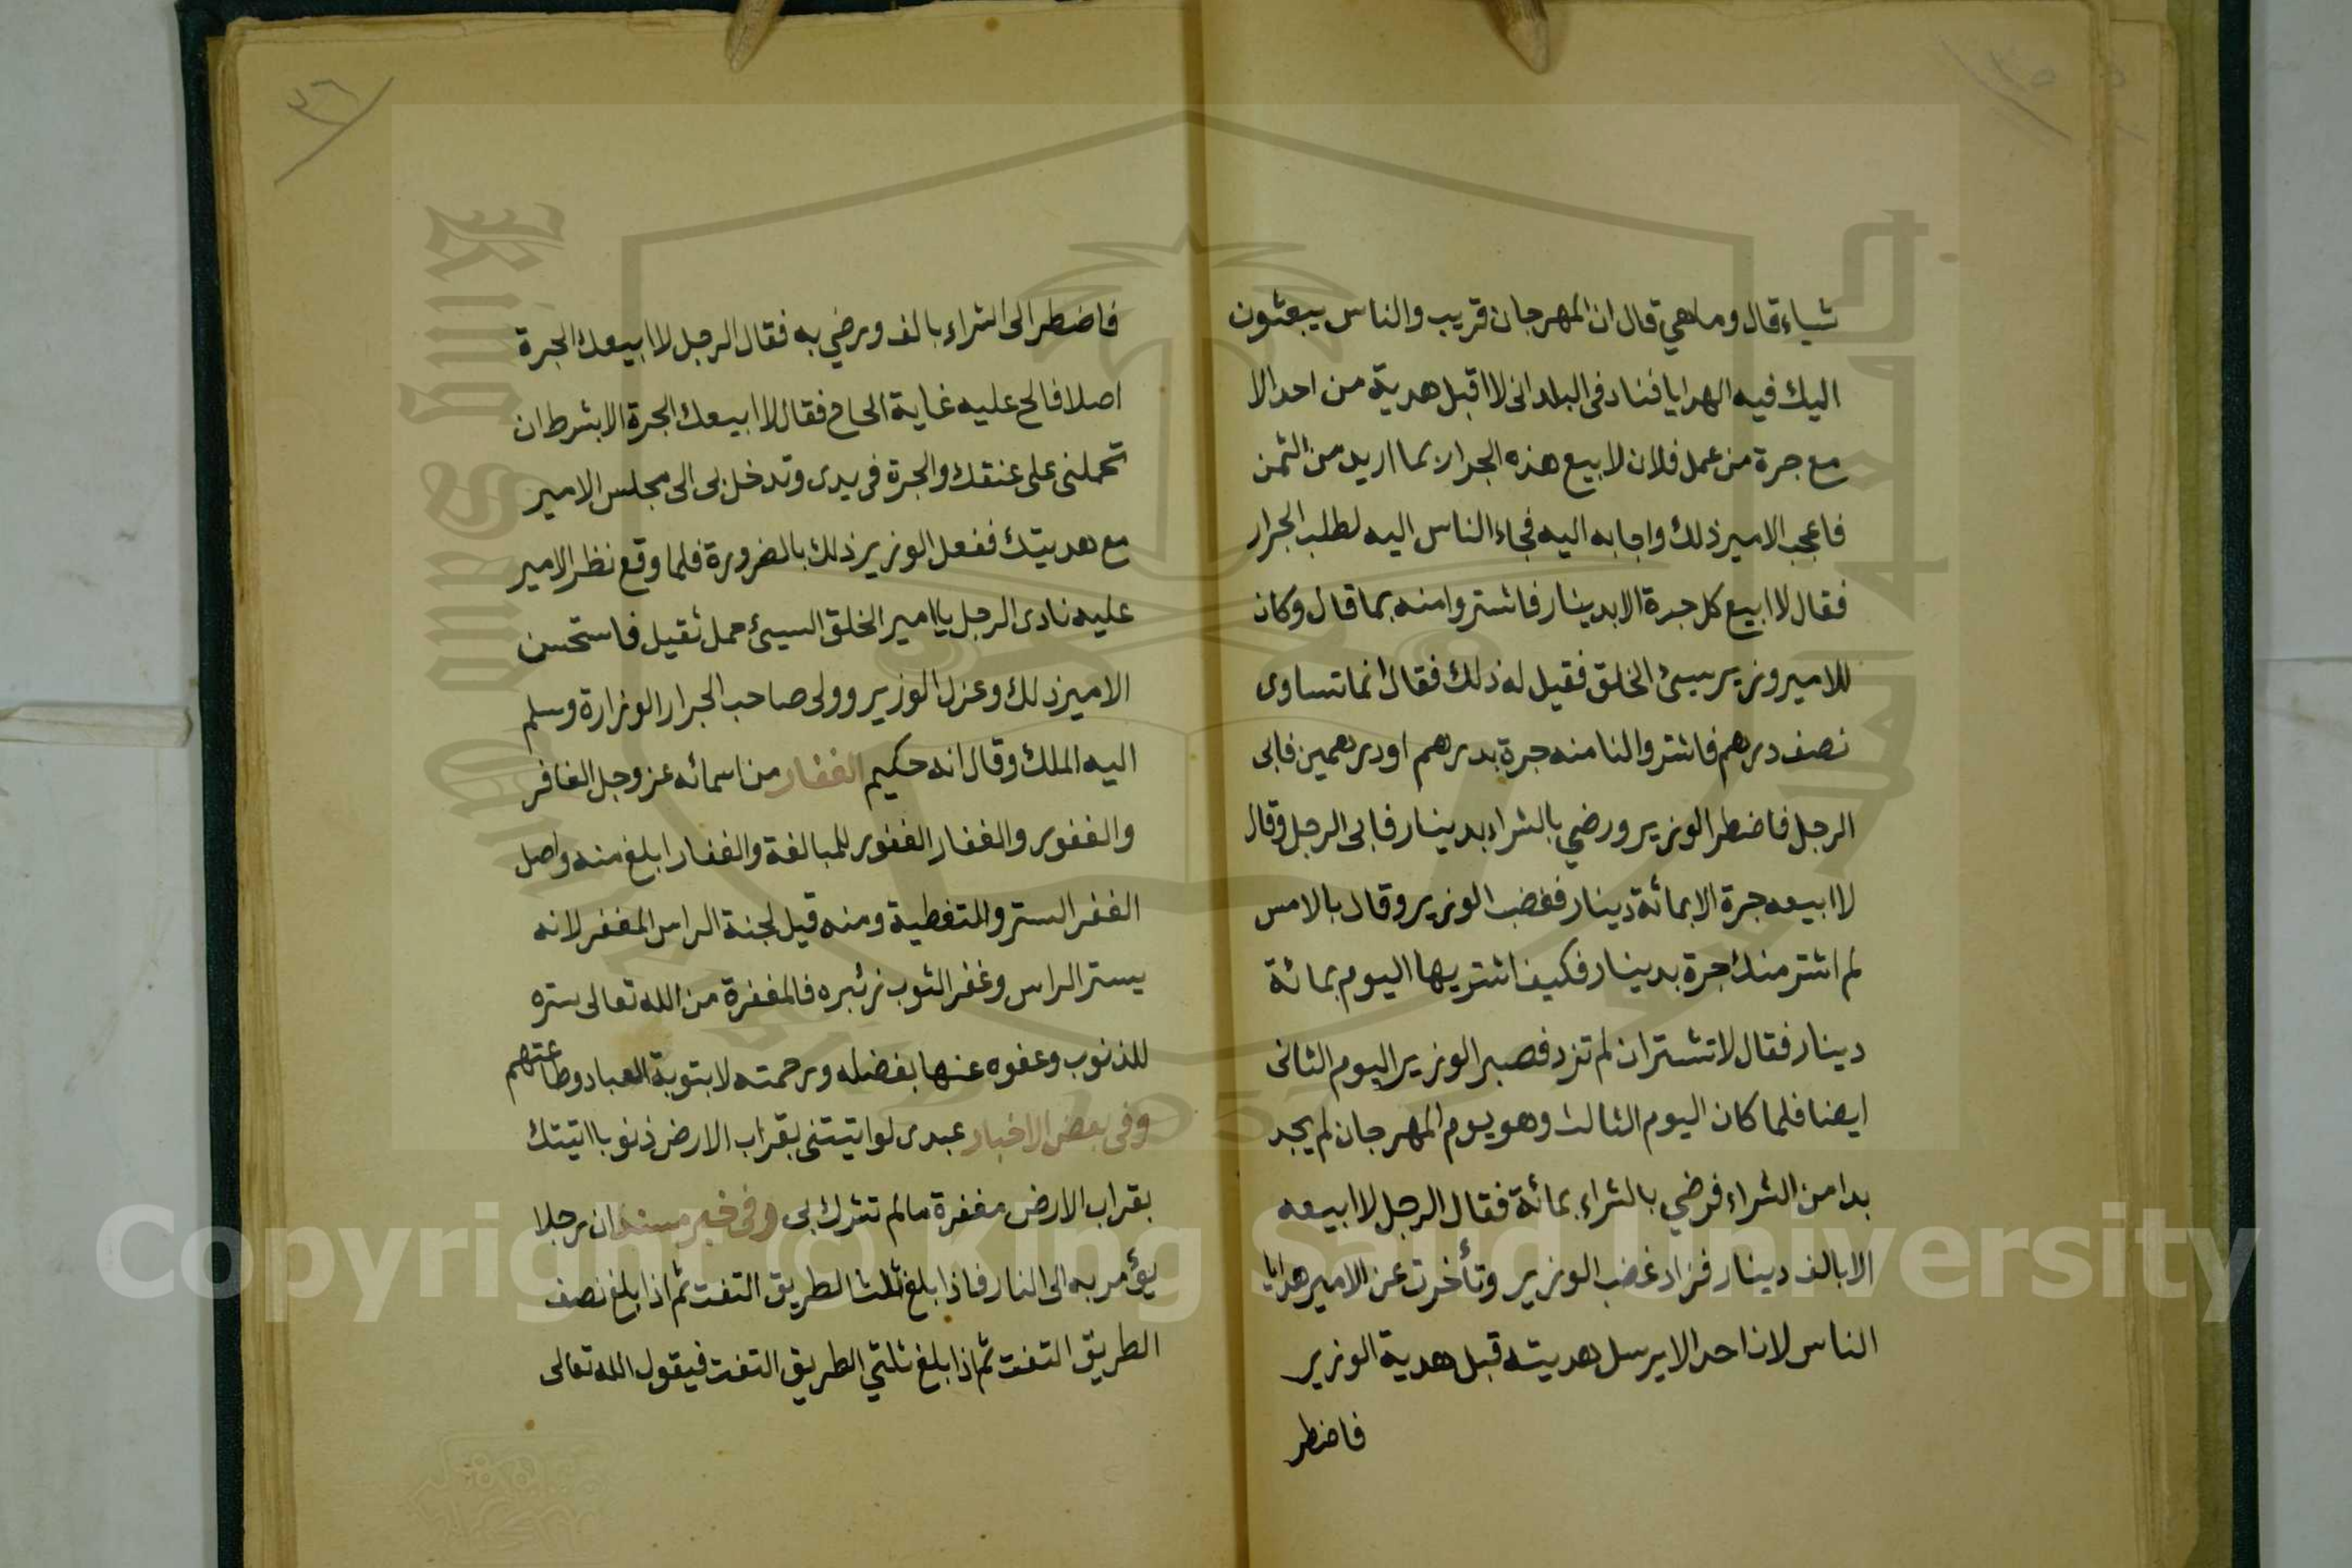 ٣٥
شياء قال وما هي قال ان المهرجان قريب والناس يبعثون
اليك فيه الهدايا فناد في البلد اني لا اقبل هدية من احد الا
مع جرة من عمل فلان لابيع هذه الجرار بما اريد من الثمن
فاعجب الامير ذلك واجابه اليه فجاء الناس اليه لطلب الجرار
فقال لا ابيع كل جرة الا بدينار فاشتروا منه بما قال وكان
للامير وزير سيئ الخلق فقيل له ذلك فقال انما تساوى
نصف درهم فاشتروا لنا منه جرة بدرهم او درهمين فابى
الرجل فاضطر الوزير ورضي بالشراء بدينار فابى الرجل وقال
لا ابيعه جرة الا بمائة دينار فغضب الوزير وقال بالامس
لم اشتر منك جرة بدينار فكيف اشتريها اليوم بمائة
دينار فقال لا تشتر ان لم تزد فصبر الوزير اليوم الثانى
ايضا فلما كان اليوم الثالث وهو يوم المهرجان لم يجد
بدا من الشراء فرضي بالشراء بمائة فقال الرجل لا ابيعه
الا بالف دينار فزاد غضب الوزير وتأخرت عن الامير هدايا
الناس لان احدا لا يرسل هديته قبل هدية الوزير
فاضطر
٣٦
فاضطر الى الشراء بالف ورضي به فقال الرجل لا ابيعك الجرة
اصلا فالح عليه غاية الحاح فقال لا ابيعك الجرة الا بشرط ان
تحملنى على عنقك والجرة في يدى وتدخل بى الى مجلس الامير
مع هديتك ففعل الوزير ذلك بالضرورة فلما وقع نظر الامير
عليه نادى الرجل يا امير الخلق السيئ حمل ثقيل فاستحسن
الامير ذلك وعزل الوزير وولى صاحب الجرار الوزارة وسلم
اليه الملك وقال انه حكيم الغفار من اسمائه عز وجل الغافر
والغفور والغفار الغفور للمبالغة والغفار ابلغ منه واصل
الغفر الستر والتغطية ومنه قيل لجنة الراس المغفر لانه
يستر الراس وغفر الثوب زئبره فالمغفرة من الله تعالى ستره
للذنوب وعفوه عنها بفضله ورحمته لا بتوبة العباد وطاعتهم
وفى بعض الاخبار عبدى لو اتيتنى بقراب الارض ذنوبا اتيتك
بقراب الارض مغفرة مالم تشرك بى وفى خبر مسند ان رجلا
يؤمر به الى النار فاذا بلغ ثلث الطريق التفت ثم اذا بلغ نصف
الطريق التفت ثم اذا بلغ ثلثي الطريق التفت فيقول الله تعالى
Copyright © King Saud University
King Saud University
1957